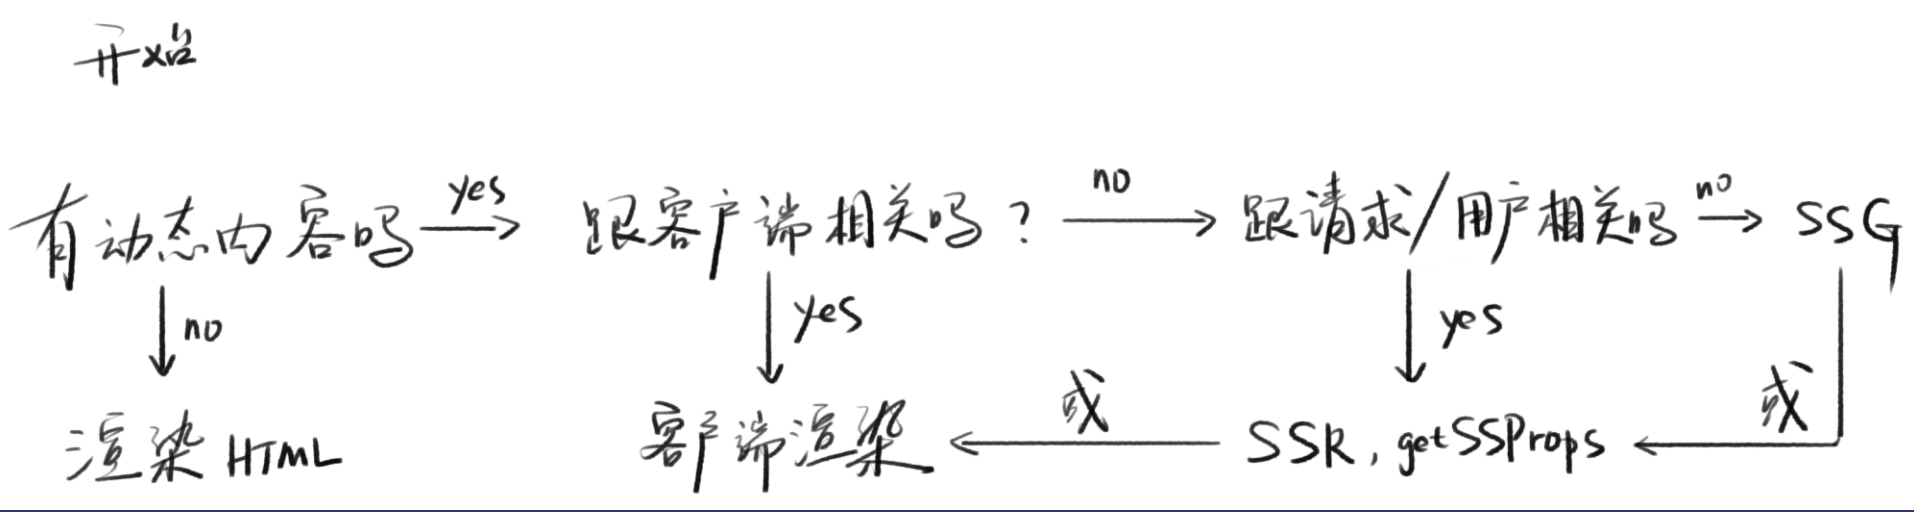 开始
有动态内容吗 yes 跟客户端相关吗? no 跟请求/用户相关吗 no SSG
no yes yes
渲染HTML 客户端渲染 或 SSR, getSSProps 或